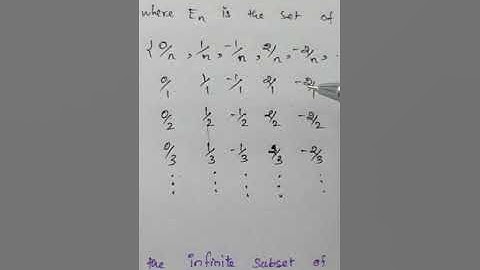 where En is the set of
{ 0/n , 1/n , -1/n , 2/n , -2/n , .
0/1 1/1 -1/1 2/1 -2/1
0/2 1/2 -1/2 2/2 -2/2
0/3 1/3 -1/3 2/3 -2/3
⋮ ⋮ ⋮ ⋮ ⋮
the infinite subset of